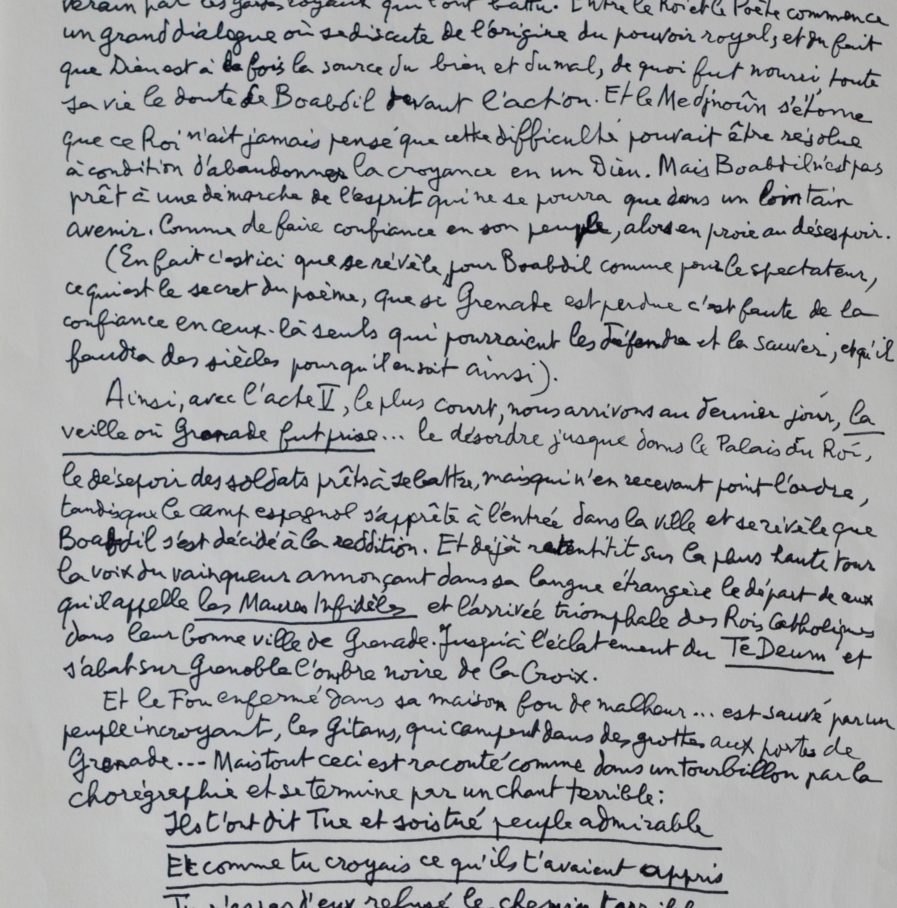 verain par les gardes royaux qui l'ont battu. Entre le Roi et le Poète commence
un grand dialogue où se discute de l'origine du pouvoir royal, et du fait
que Dieu est à la fois la source du bien et du mal, de quoi fut nourri, toute
sa vie le doute de Boabdil devant l'action. Et le Medjnoûn s'étonne
que ce Roi n'ait jamais pensé que cette difficulté pouvait être résolue
à condition d'abandonner la croyance en un Dieu. Mais Boabdil n'est pas
prêt à une démarche de l'esprit qui ne se pourra que dans un lointain
avenir. Comme de faire confiance en son peuple, alors en proie au désespoir.
(En fait c'est ici que se révèle, pour Boabdil comme pour le spectateur,
ce qui est le secret du poème, que si Grenade est perdue c'est faute de la
confiance en ceux-là seuls qui pourraient les défendre et la sauver, et qu'il
faudra des siècles pour qu'il en soit ainsi).
Ainsi, avec l'acte V, le plus court, nous arrivons au dernier jour, la
veille où Grenade fut prise... le désordre jusque dans le Palais du Roi,
le désespoir des soldats prêts à se battre, mais qui n'en recevant point l'ordre,
tandis que le camp espagnol s'apprête à l'entrée dans la ville et se révèle que
Boabdil s'est décidé à la reddition. Et déjà retentit sur la plus haute tour
la voix du vainqueur annonçant dans sa langue étrangère le départ de ceux
qu'il appelle les Maures Infidèles et l'arrivée triomphale des Rois Catholiques
dans leur bonne ville de Grenade. Jusqu'à l'éclatement du Te Deum et
s'abat sur Grenoble l'ombre noire de la Croix.
Et le Fou enfermé dans sa maison fou de malheur... est sauvé par un
peuple incroyant, les Gitans, qui campent dans des grottes aux portes de
Grenade... Mais tout ceci est raconté comme dans un tourbillon par la
chorégraphie et se termine par un chant terrible:
Ils t'ont dit Tue et sois tué peuple admirable
Et comme tu croyais ce qu'ils t'avaient appris
Tu n'as pas d'eux refusé le chemin terrible